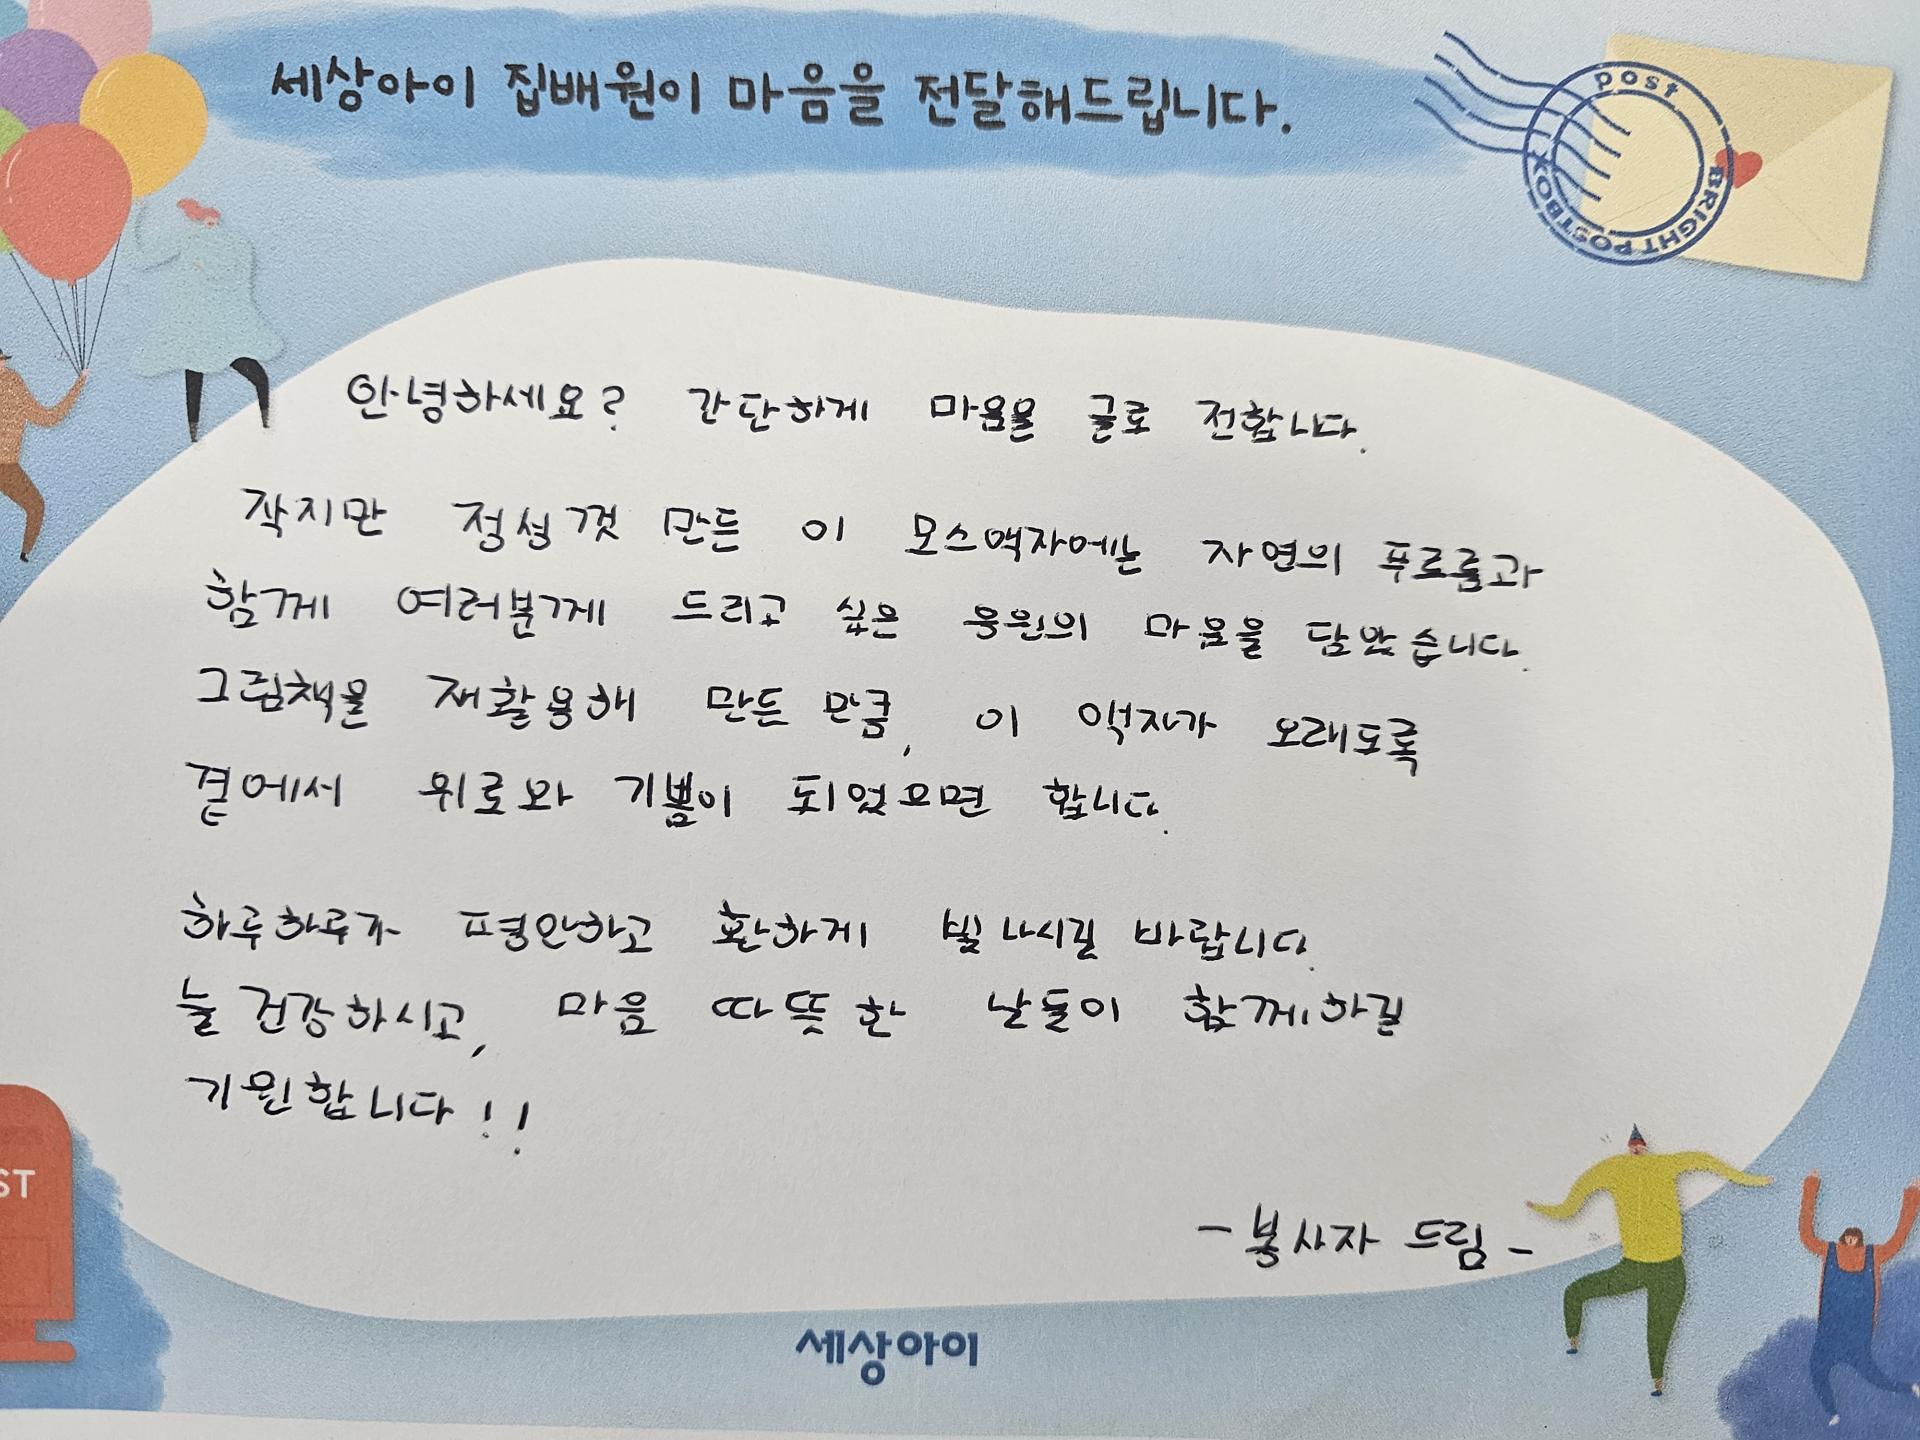 세상아이 집배원이 마음을 전달해드립니다.
post
BRIGHT POSTBOX
안녕하세요? 간단하게 마음을 글로 전합니다.
작지만 정성껏 만든 이 모스액자에는 자연의 푸르름과
함께 여러분께 드리고 싶은 응원의 마음을 담았습니다.
그림책을 재활용해 만든 만큼, 이 액자가 오래도록
곁에서 위로와 기쁨이 되었으면 합니다.
하루하루가 평안하고 환하게 빛나시길 바랍니다.
늘 건강하시고, 마음 따뜻한 날들이 함께하길
기원합니다!!
ST
- 봉사자 드림 -
세상아이